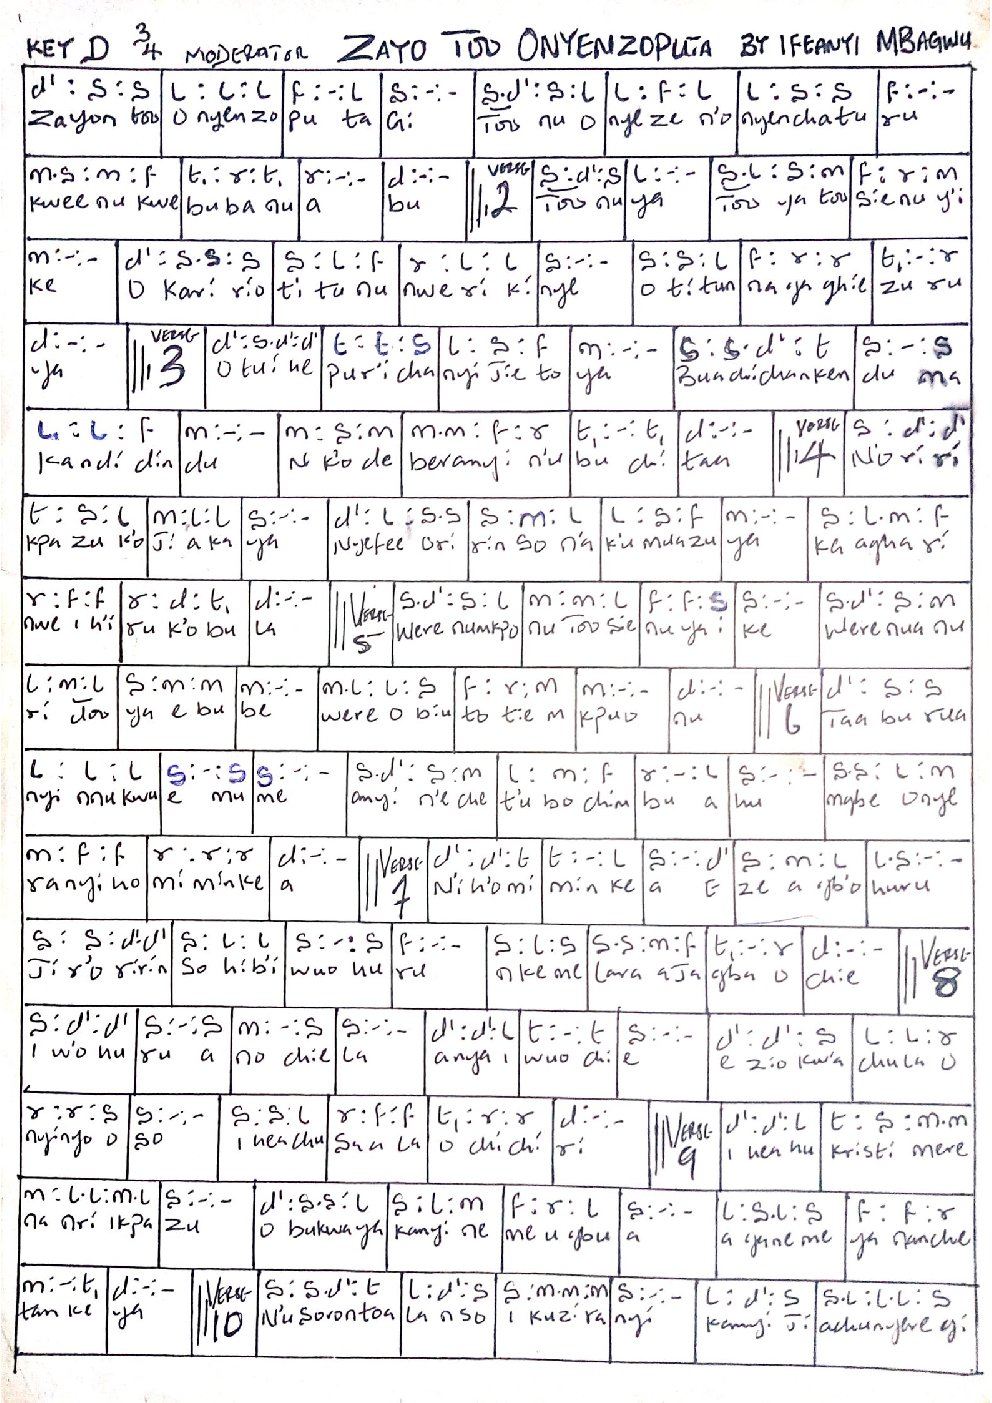 KEY D 3/4 MODERATOR ZAYO TOO ONYENZOPUTA BY IFEANYI MBAGWU
d' : s : s | l : l : l | f : - : l | s : - : - | s.d' : s : l | l : f : l | l : s : s | f : - : -
Zayon too | O nyenzo | pu ta | Gi | Too nu O | nye ze n'o | nyenchatu | ru
m.s : m : f | t, : r : t, | r : - : - | d : - : - | VERSE 2 | s : d' : s | l : - : - | s.l : s : m | f : r : m
kwee nu kwe | bu ba nu | a | bu | Too nu | ya | Too ya too | sie nu y'i
m : - : - | d' : s.s : s | s : l : f | r : l : l | s : - : - | s : s : l | f : r : r | t, : - : r
ke | O kari rio | ti tu nu | nwe ri ki | nye | o ti tun | na ya ghie | zu ru
d : - : - | VERSE 3 | d' : s.d' : d' | t : t : s | l : s : f | m : - : - | s : s.d' : t | s : - : s
ya | O tu i he | puri cha | nyi Jie to | ya | Buachichanken | du ma
l, : l : f | m : - : - | m : s : m | m.m : f : r | t, : - : t, | d : - : - | VERSE 4 | s : d' : d'
kandi din | du | N k'o de | beranyi n'u | bu chi | taa | N'o ri ri
t : s : l | m : l : l | s : - : - | d' : l : s.s | s : m : l | l : s : f | m : - : - | s : l.m : f
kpa zu k'o | Ji a ka | ya | Njefee ori | rin so n'a | k'u mua zu | ya | ka agha ri
r : f : f | r : d : t, | d : - : - | VERSE 5 | s.d' : s : l | m : m : l | f : f : s | s : - : - | s.d' : s : m
nwe i h'i | ru k'o bu | la | were numkpo | nu Too sie | nu ya i | ke | were nua nu
l : m : l | s : m : m | m : - : - | m.l : l : s | f : r : m | m : - : - | d : - : - | VERSE 6 | d' : s : s
ri Too | ya e bu | be | were o biu | to tie m | kpuo | nu | Taa bu rua
l : l : l | s : - : s | s : - : - | s.d' : s : m | l : m : f | r : - : l | s : - : - | s.s : l : m
nyi nnu kwu | e mu | me | anyi n'e che | t'u bo chim | bu a | hu | mgbe onye
m : f : f | r : r : r | d : - : - | VERSE 7 | d' : d' : t | t : - : l | s : - : d' | s : m : l | l.s : - : -
ranyi ho | mi minke | a | N'i h'o mi | min ke | a E | ze a gb'o | huru
s : s : d'.d' | s : l : l | s : - : s | f : - : - | s : l : s | s.s : m : f | t, : - : r | d : - : - | VERSE 8
Ji r'o ririn | so hib'i | wuo hu | ru | nke me | lara aja | gba o | chie
s : d' : d' | s : - : s | m : - : s | s : - : - | d' : d' : l | t : - : t | s : - : - | d' : d' : s | l : l : r
I w'o hu | ru a | no chie | la | anya i | wuo chi | e | e zio kw'a | chula o
r : r : s | s : - : - | s : s : l | r : f : f | t, : r : r | d : - : - | VERSE 9 | d' : d' : l | t : s : m.m
nyinyo o | so | i hea chu | saa la | o chichi | ri | I hea hu | kristi mere
m : l.l : m.l | s : - : - | d' : s.s : l | s : l : m | f : r : l | s : - : - | l : s.l : s | f : f : r
na nri ikpa | zu | O bukwa ya | kanyi ne | me u gbu | a | a ga ne me | ya nanche
m : - : t, | d : - : - | VERSE 10 | s : s.d' : t | l : d' : s | s : m.m : m | s : - : - | l : d' : s | s.l : l.l : s
tan ke | ya | N'u sorontoa | la nso | i kuzi ra | nyi | kanyi Ji | achunyere gi